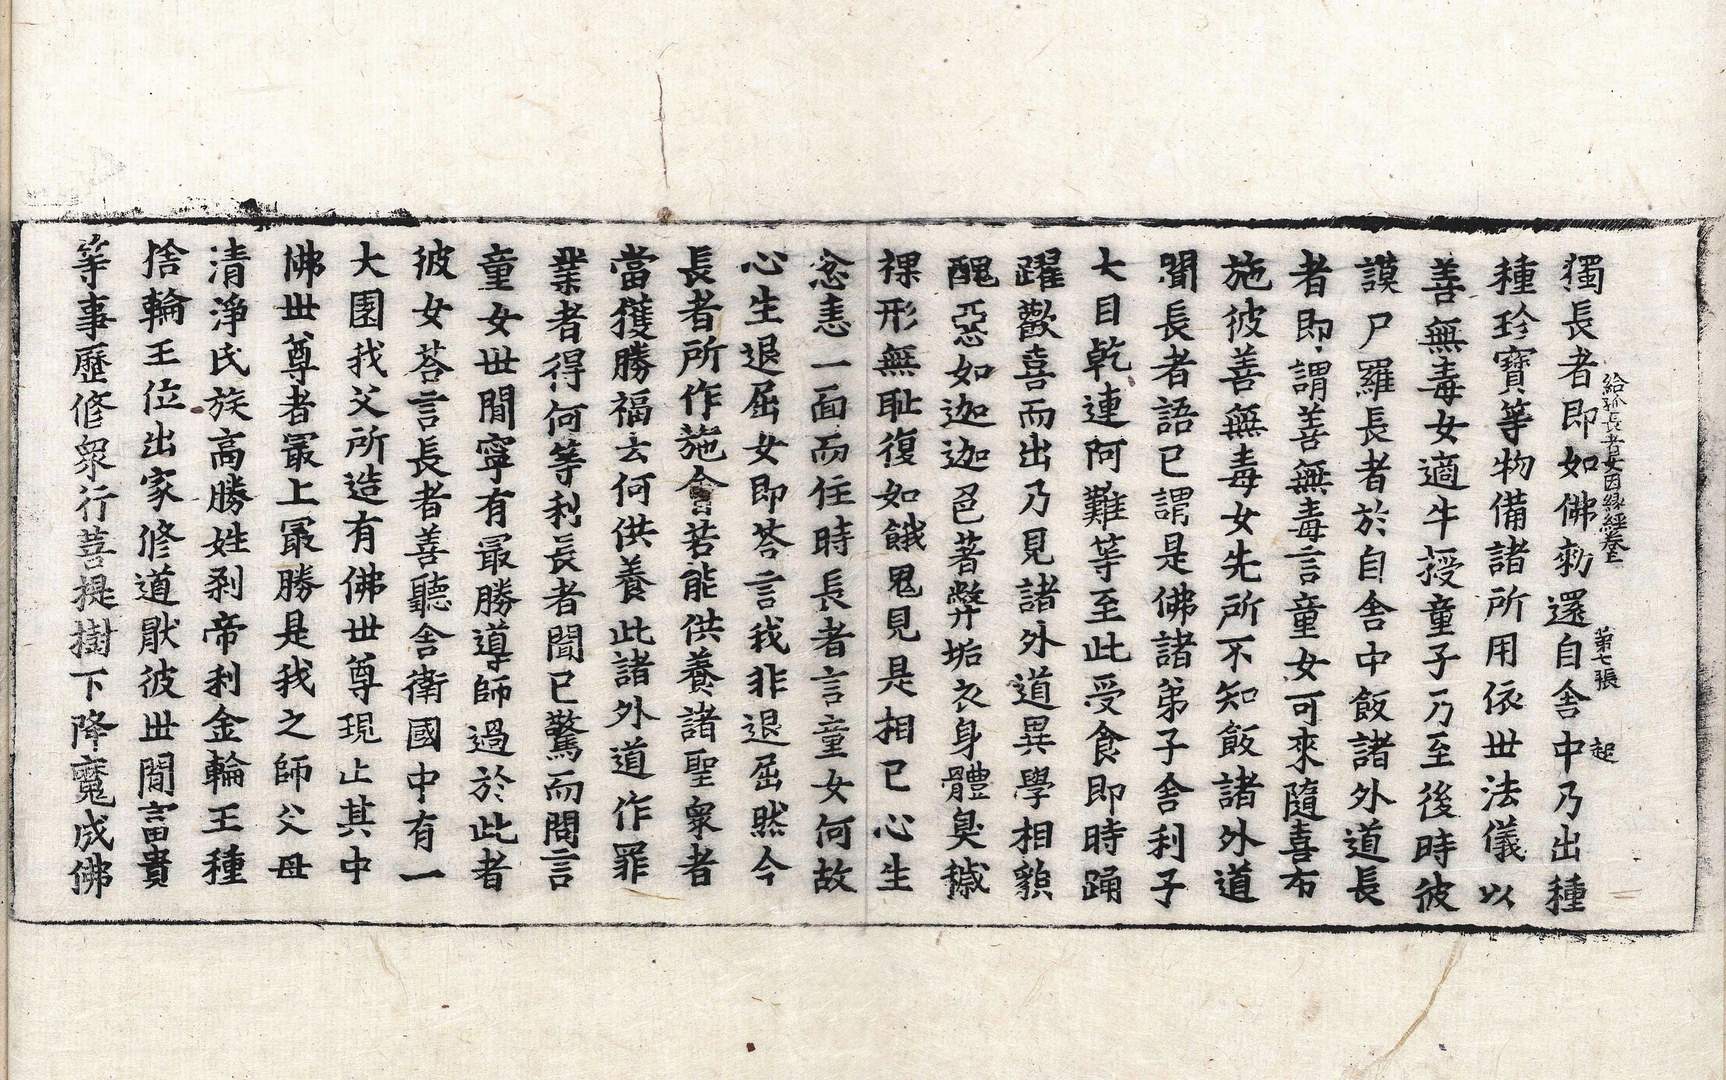 給孤長者女因緣經卷上 第七張 起
獨長者即如佛勑還自舎中乃出種
種珎寶等物備諸所用依丗法儀以
善無毒女適牛授童子乃至後時彼
謨尸羅長者於自舎中飯諸外道長
者即謂善無毒言童女可來隨喜布
施彼善無毒女先所不知飯諸外道
聞長者語已謂是佛諸弟子舎利子
大目乾連阿難等至此受食即時踊
躍歡喜而出乃見諸外道異學相貌
醜惡如迦迦色著弊垢衣身體臭穢
裸形無恥復如餓鬼見是相已心生
念恚一面而住時長者言童女何故
心生退屈女即荅言我非退屈然今
長者所作施會若能供養諸聖衆者
當獲勝福云何供養此諸外道作罪
業者得何等利長者聞已驚而問言
童女丗間寧有㝡勝導師過於此者
彼女荅言長者善聽舎衛國中有一
大園我父所造有佛丗尊現止其中
佛丗尊者㝡上㝡勝是我之師父母
清淨氏族高勝姓刹帝利金輪王種
捨輪王位出家修道猒彼丗間富貴
等事歷修衆行菩提樹下降魔成佛